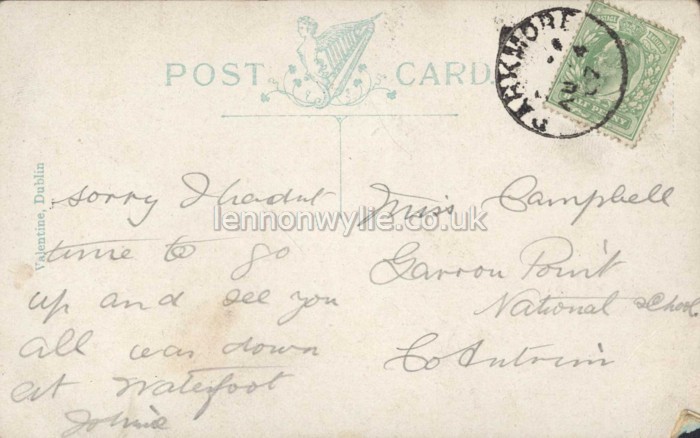 POST CARD
PARKMORE
JU 4
07
HALFPENNY
Valentine, Dublin
lennonwylie.co.uk
sorry I hadnt
time to go
up and see you
all was down
at Waterfoot
Miss Campbell
Garron Point
National School
Co Antrim